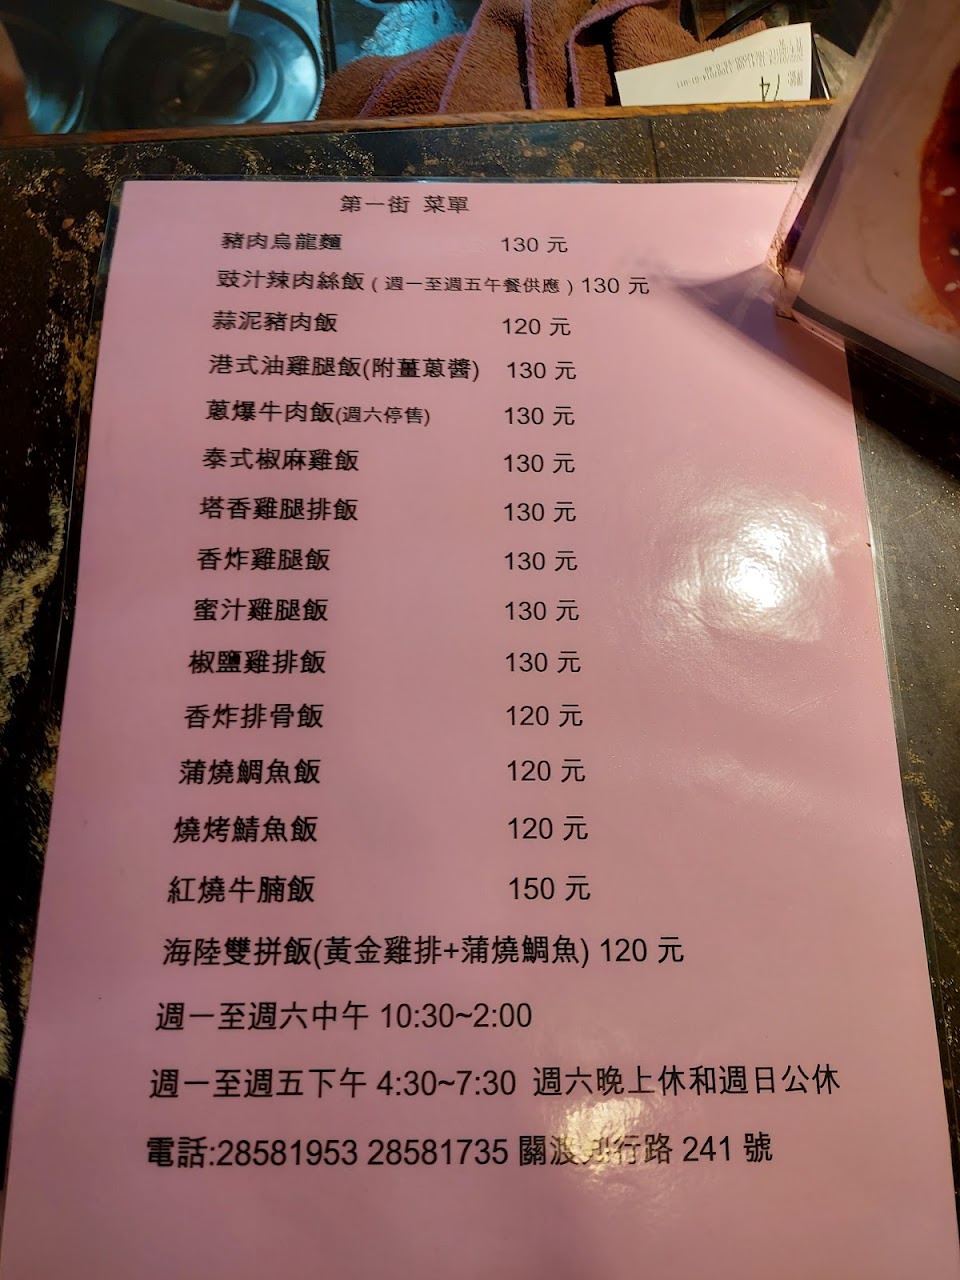 第一街 菜單
豬肉烏龍麵 130 元
豉汁辣肉絲飯(週一至週五午餐供應)130 元
蒜泥豬肉飯 120 元
港式油雞腿飯(附薑蔥醬) 130 元
蔥爆牛肉飯(週六停售) 130 元
泰式椒麻雞飯 130 元
塔香雞腿排飯 130 元
香炸雞腿飯 130 元
蜜汁雞腿飯 130 元
椒鹽雞排飯 130 元
香炸排骨飯 120 元
蒲燒鯛魚飯 120 元
燒烤鯖魚飯 120 元
紅燒牛腩飯 150 元
海陸雙拼飯(黃金雞排+蒲燒鯛魚) 120 元
週一至週六中午 10:30~2:00
週一至週五下午 4:30~7:30 週六晚上休和週日公休
電話:28581953 28581735 關渡 行路 241 號